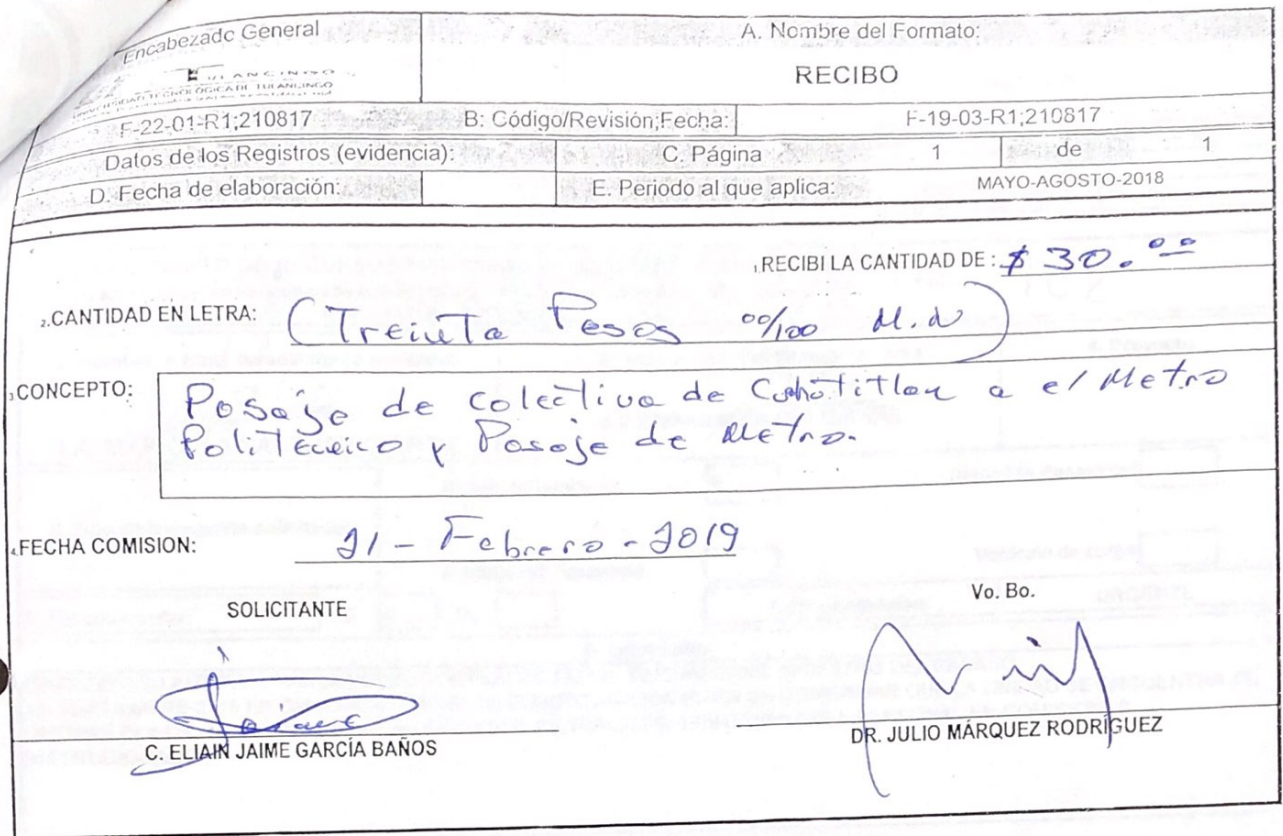 Encabezado General
A. Nombre del Formato:
RECIBO
UNIVERSIDAD TECNOLÓGICA DE TULANCINGO
F-22-01-R1;210817 B: Código/Revisión;Fecha: F-19-03-R1;210817
Datos de los Registros (evidencia): C. Página 1 de 1
D. Fecha de elaboración: E. Periodo al que aplica: MAYO-AGOSTO-2018
1.RECIBI LA CANTIDAD DE : $ 30.00
2.CANTIDAD EN LETRA: (Treinta Pesos 00/100 M.N)
3.CONCEPTO: Pasaje de colectivo de a el Metro
Politecnico y Pasaje de Metro.
4.FECHA COMISION: 21-Febrero-2019
SOLICITANTE Vo. Bo.
C. ELIAIN JAIME GARCÍA BAÑOS DR. JULIO MÁRQUEZ RODRÍGUEZ